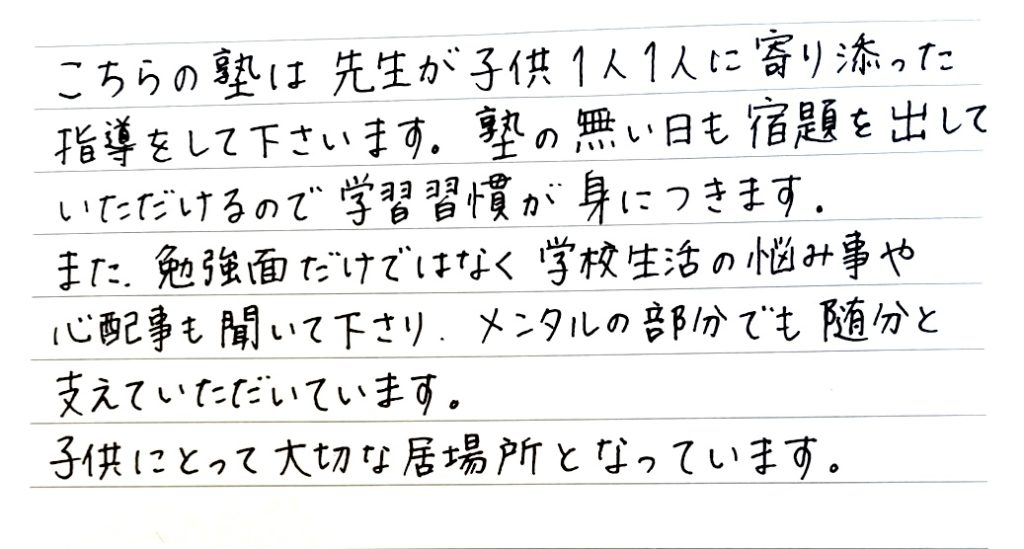 こちらの塾は先生が子供1人1人に寄り添った
指導をして下さいます。塾の無い日も宿題を出して
いただけるので学習習慣が身につきます。
また、勉強面だけではなく学校生活の悩み事や
心配事も聞いて下さり、メンタルの部分でも随分と
支えていただいています。
子供にとって大切な居場所となっています。